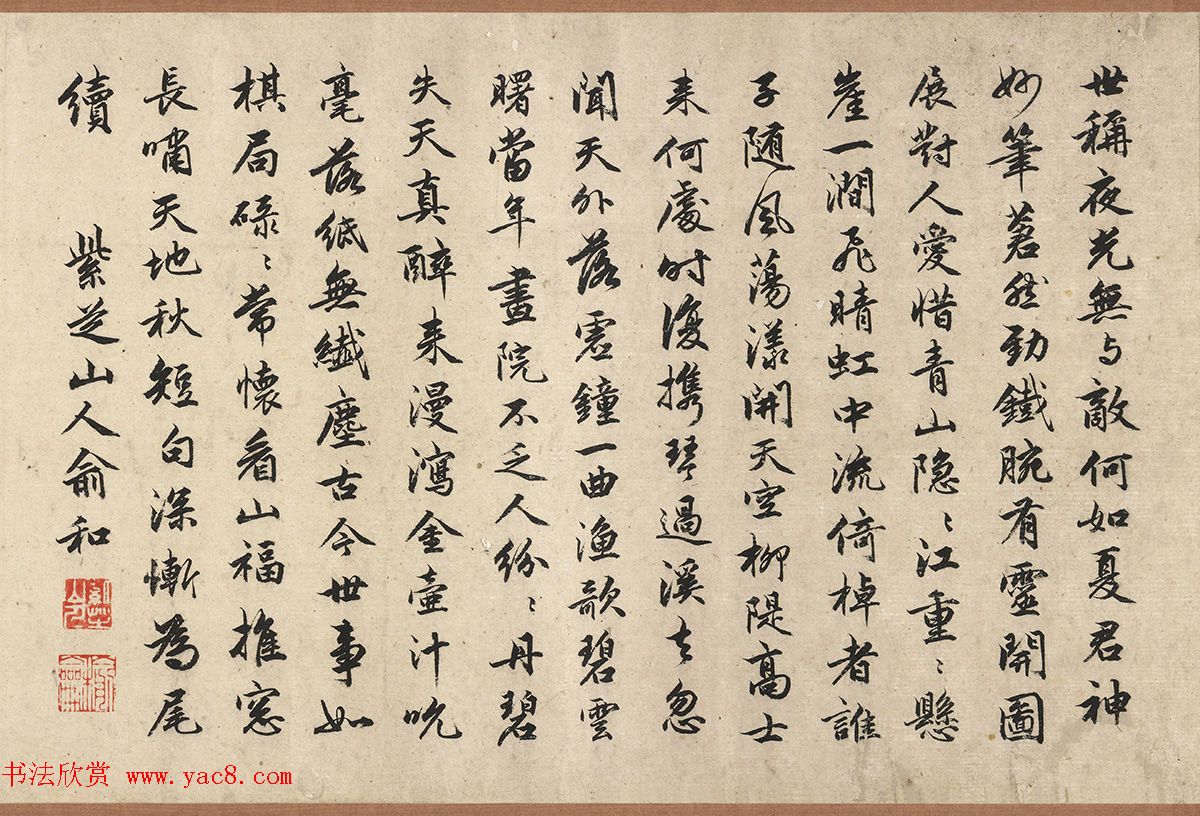 世稱夜光無与敵何如夏君神
妙筆茗然勁鐵腕有靈開圖
展對人愛惜青山隐〻江重〻懸
崖一澗飛晴虹中流倚棹者誰
子随風蕩漾開天空柳隄高士
来何處時復携琴過溪去忽
聞天外落霜鐘一曲漁歌碧雲
曙當年畫院不乏人紛〻丹碧
失天真醉来漫瀉金壺汁吮
毫落紙無纖塵古今世事如
棋局碌〻常懷看山福推窓
長嘯天地秋短句深慚為尾
續 紫芝山人俞和
书法欣赏 www.yac8.com